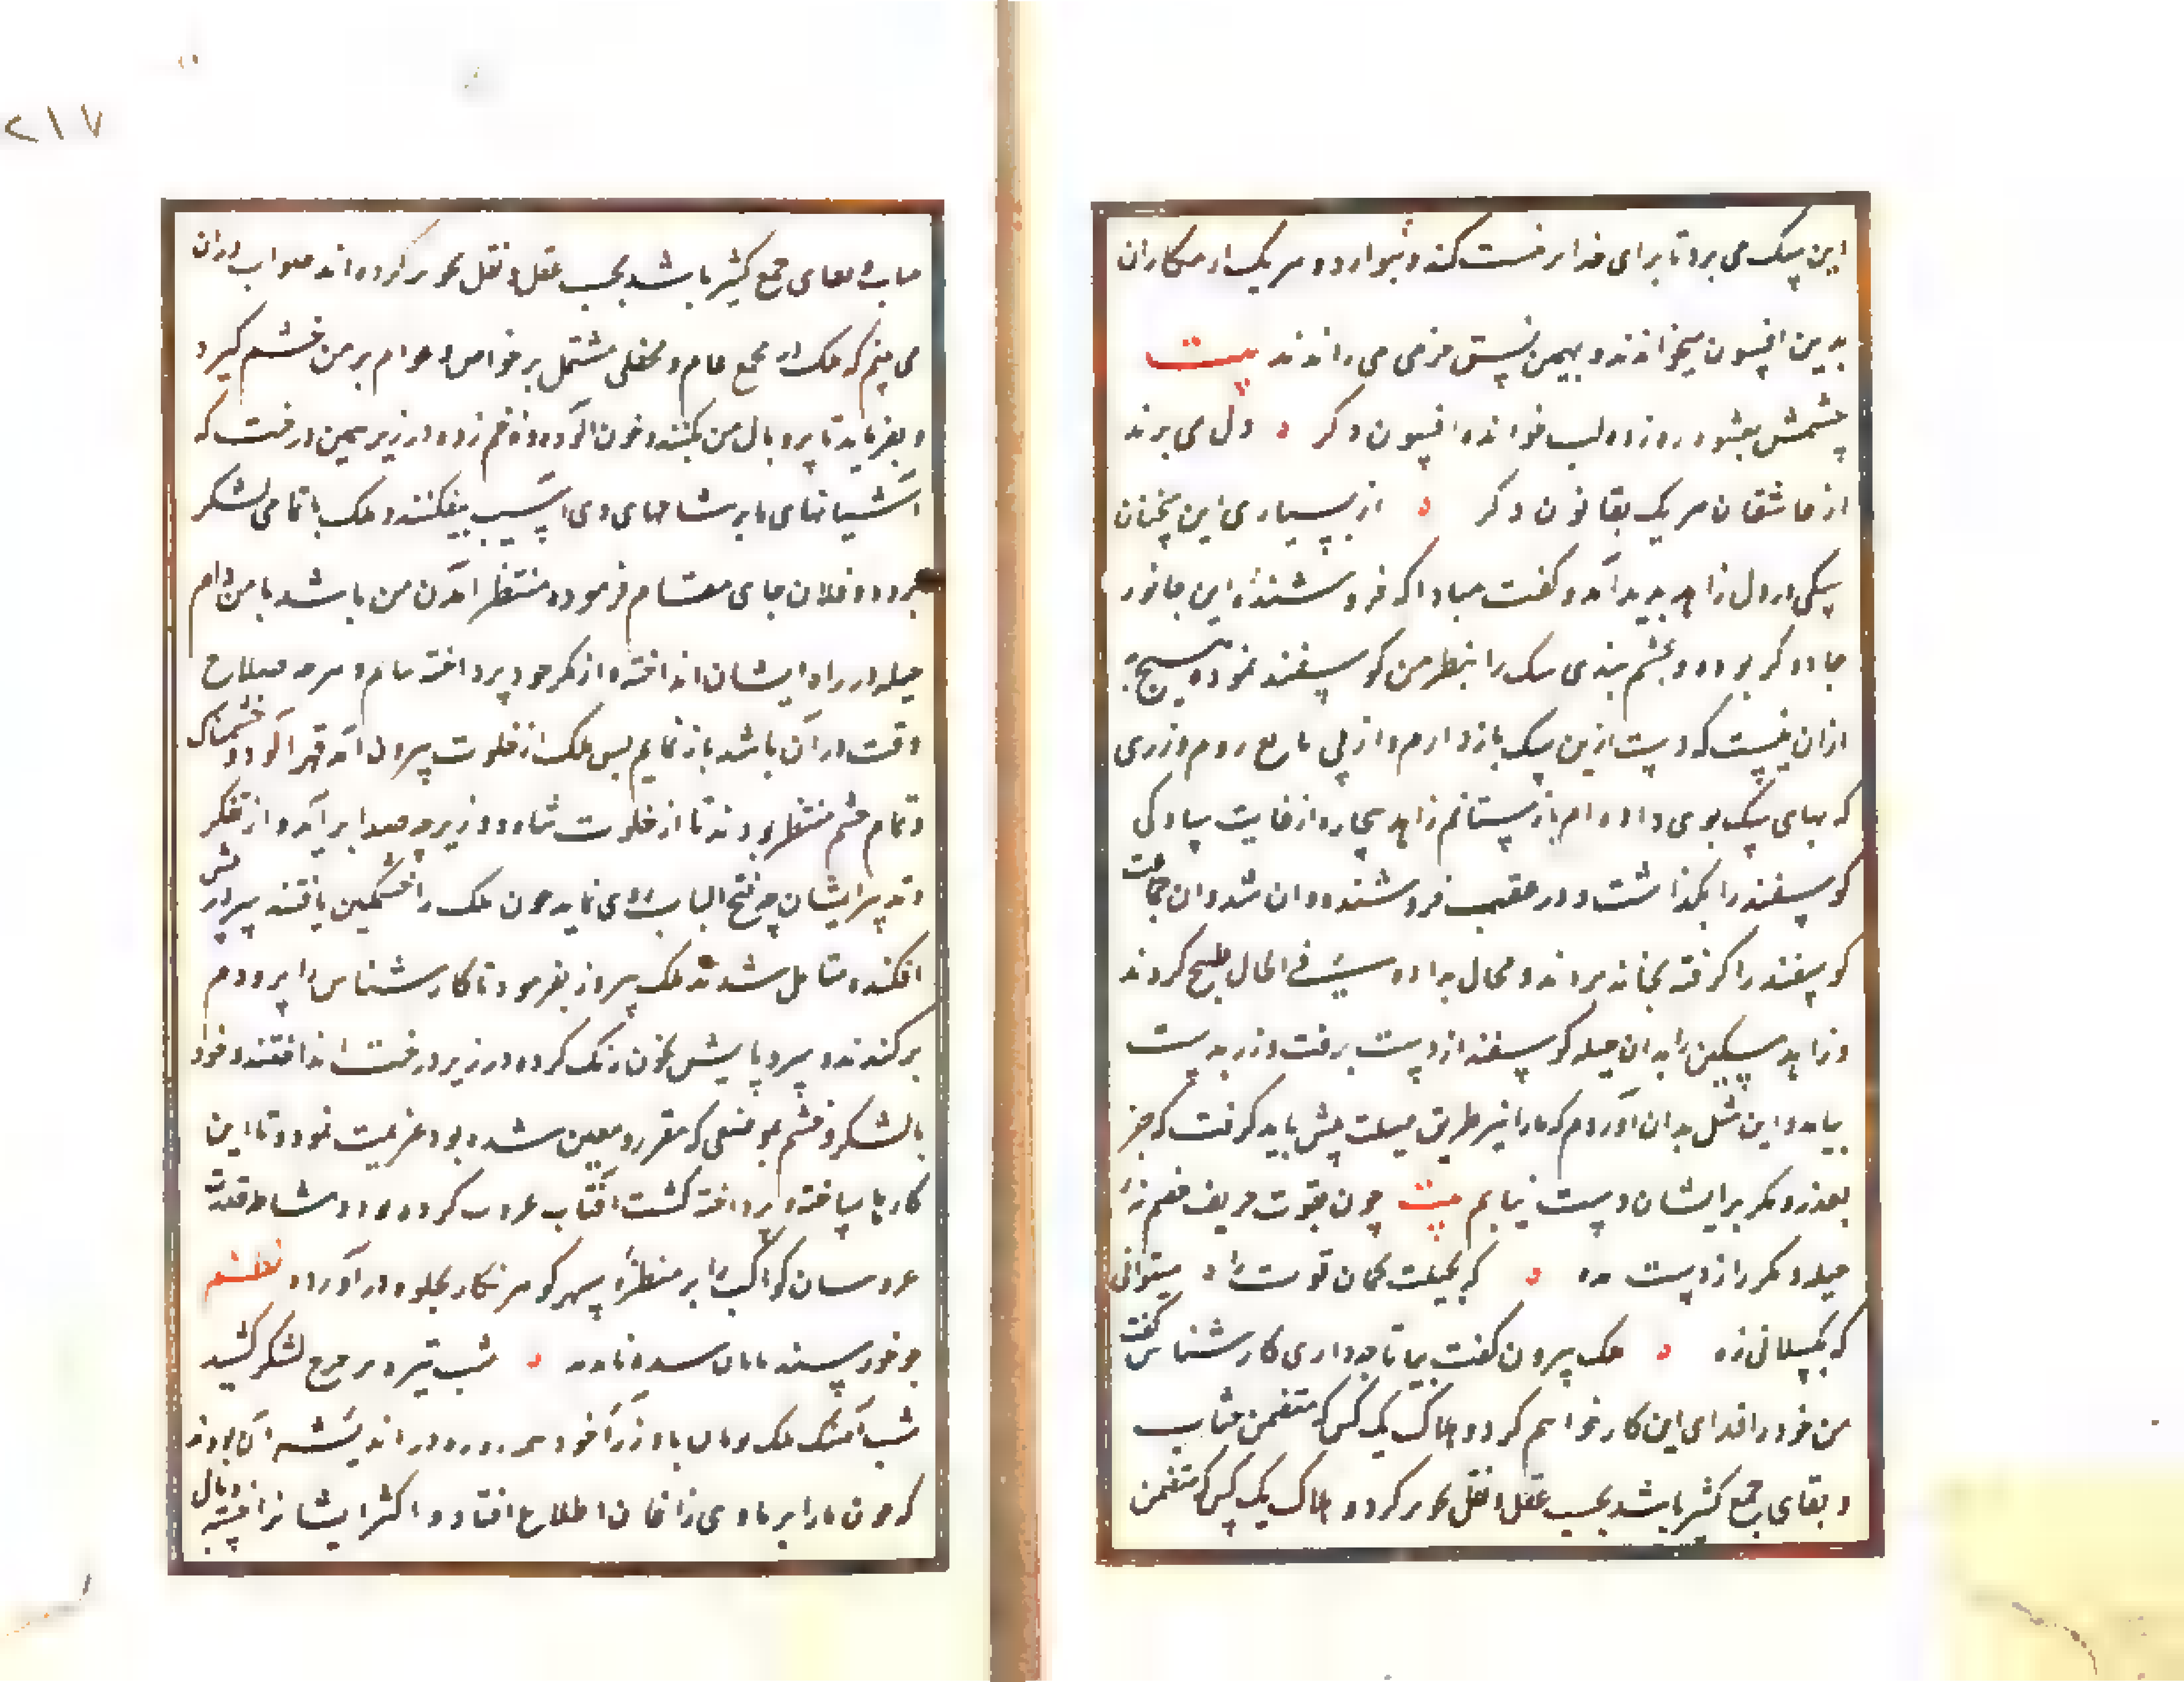 این سک می برد تا برای خدا بر خست کند و بنوارد و هر یک از مکاران
بدین افسون میخواندند و بهمین نسق حرفی می راندند بیت
چشمش بعشوه روزد و لب خوانده افسون دکر دل می برند
از عاشقان هر یک بقانون دکر از بسیاری این سخنان
شکی در دل زاهد پدید آمد و کفت مبادا که فروشنده این جانور
جادوکر بوده و بچشم بندی سک را بنظر من کوسفند نموده هیچ به
ازان نیست که دست ازین سک بازدارم و از پی بایع روم و زری
که بهای سک بوی داده ام بازستانم زاهد بیچاره از غایت سادکی
کوسفند را بکذاشت و در عقب فروشنده روان شد و ان جماعت
کوسفند را کرفته بخانه بردند و مجال نداده فی الحال ذبح کردند
و زاهد مسکین را بدان حیله کوسفند از دست برفت و زر بدست
نیامد و این مثل بدان آوردم که ما را نیز طریق حیلت پیش باید کرفت که جز
بعذر و مکر بر ایشان دست نیابیم بیت چون بقوت حریف خصم نه
حیله و مکر را ز دست مده که بحیلت کمان قوت را میتوانی
که بکسلانی زه ملک پیروز کفت بیا تا چه داری کارشناس کفت
من خود را فدای این کار خواهم کرد و هلاک یک کس که متضمن حیات
و بقای جمع کثیر باشد بحسب عقل و نقل تجویز کرده و هلاک یک کس که متضمن
حیات و بقای جمع کثیر باشد بحسب عقل و نقل تجویز کرده اند صواب دران
می بینم که ملک در مجمع عام و محفلی مشتمل بر خواص و عوام بر من خشم کیرد
و بفرماید تا پر و بال من بکنند و خون آلوده و زخم زده در زیر همین درخت که
آشیانهای ما بر شاخهای وی است بیفکنند و ملک با تمامی لشکر
برود و فلان جای مقام فرموده منتظر آمدن من باشد تا من دام
حیله در راه ایشان انداخته و از مکر خود پرداخته بیایم و هرچه صلاح
وقت در آن باشد باز نمایم پس ملک از خلوت بیرون آمد قهر آلود و خشمناک
و تمام حشم منتظر بودند تا از خلوت شاه و وزیر چه صدا برآید و از تفکر
و تدبیر ایشان چه فتح الباب روی نماید چون ملک را خشمکین یافتند سر در پیش
افکنده متامل شدند ملک پیروز بفرمود تا کارشناس را پر و دم
برکندند و سر و پایش بخون رنک کرده در زیر درخت انداختند و خود
با لشکر و حشم بموضعی که مقرر و معین شده بود عزیمت نمود و تا این
کارها ساخته و پرداخته کشت آفتاب غروب کرده بود و مشاطه قدرت
عروسان کواکب را بر منظره سپهر کوهر نکار بجلوه در آورده نظم
چو خورشید تابان شب تیره بر چرخ لشکر کشید
شب آهنک ملک بومان با وزرا خود همه روزه در اندیشه آن بودند
که چون ما را بر ماوی زاغان اطلاع افتاد و اکثر ایشان را خسته و بال
۲۱۷